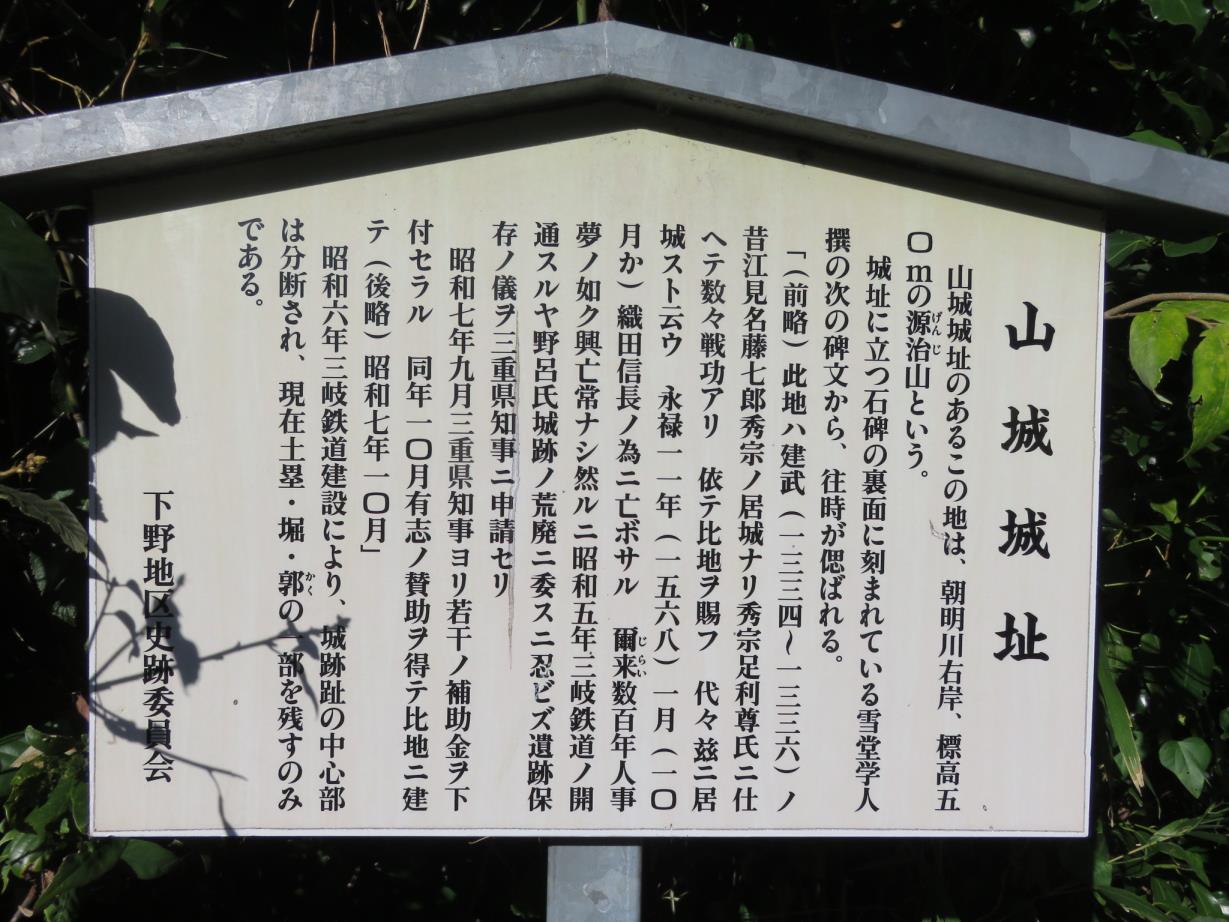 山城城址
山城城址のあるこの地は、朝明川右岸、標高五
〇mの源治山という。
げんじ
城址に立つ石碑の裏面に刻まれている雪堂学人
撰の次の碑文から、往時が偲ばれる。
「(前略)此地ハ建武(一三三四~一三三六)ノ
昔江見名藤七郎秀宗ノ居城ナリ秀宗足利尊氏ニ仕
ヘテ数々戦功アリ 依テ比地ヲ賜フ 代々茲ニ居
城スト云ウ 永禄一一年(一五六八)一月(一〇
月か)織田信長ノ為ニ亡ボサル 爾来数百年人事
じらい
夢ノ如ク興亡常ナシ然ルニ昭和五年三岐鉄道ノ開
通スルヤ野呂氏城跡ノ荒廃ニ委スニ忍ビズ遺跡保
存ノ儀ヲ三重県知事ニ申請セリ
昭和七年九月三重県知事ヨリ若干ノ補助金ヲ下
付セラル 同年一〇月有志ノ賛助ヲ得テ比地ニ建
テ(後略)昭和七年一〇月」
昭和六年三岐鉄道建設により、城跡趾の中心部
は分断され、現在土塁・堀・郭の一部を残すのみ
かく
である。
下野地区史跡委員会